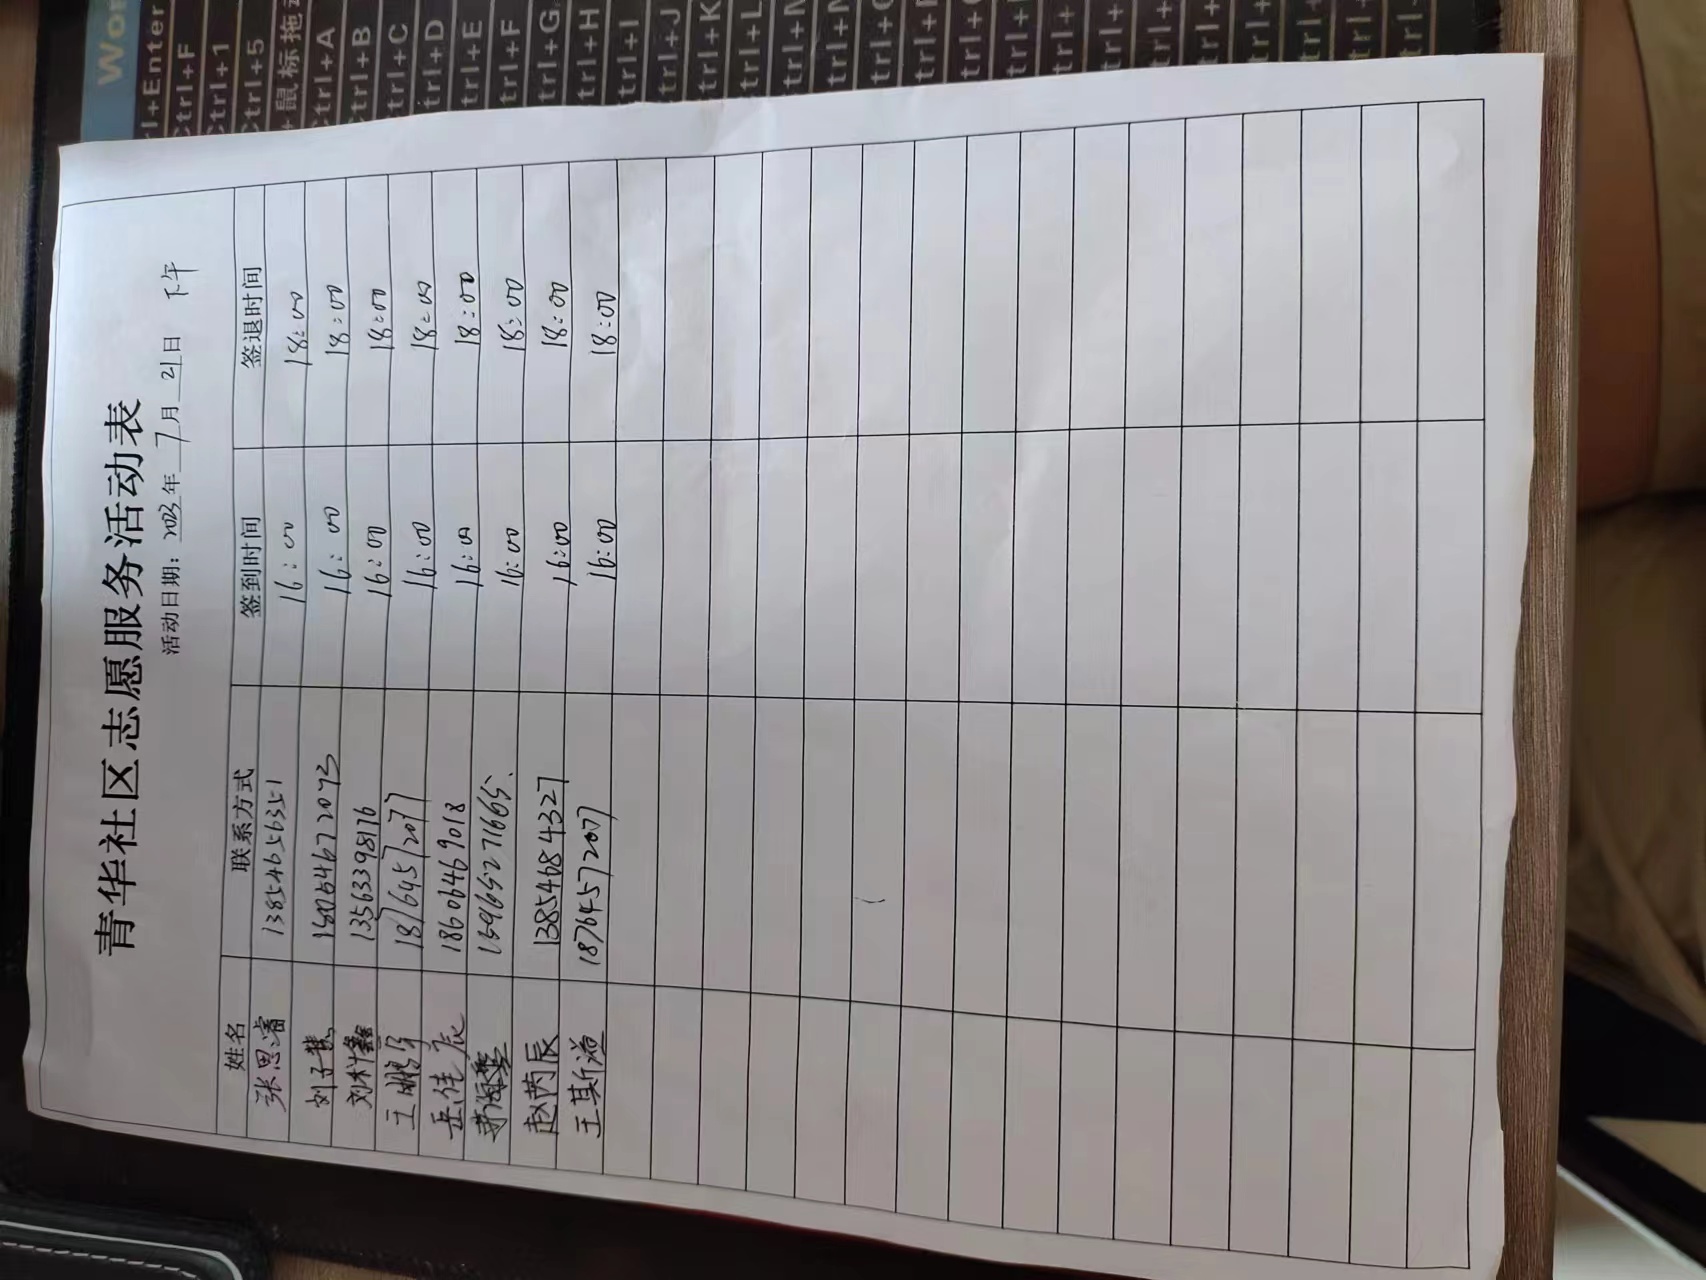 青华社区志愿服务活动表
活动日期：2023年 7月 21日 下午
姓名 联系方式 签到时间 签退时间
张思睿 13854656351 16:00 18:00
刘子慧 158054672073 16:00 18:00
刘梓鑫 13563398176 16:00 18:00
王鹏宇 18764572077 16:00 18:00
岳佳辰 18606469018 16:00 18:00
15965271665、 16:00 18:00
赵芮辰 13854684327 16:00 18:00
王其溢 18764572007 16:00 18:00
Wor
rl+Enter
Ctrl+F
Ctrl+1
Ctrl+5
+鼠标标拖
Ctrl+A
Ctrl+B
Ctrl+C
Ctrl+D
trl+E
trl+F
trl+G
trl+H
trl+I
trl+J
trl+K
trl+L